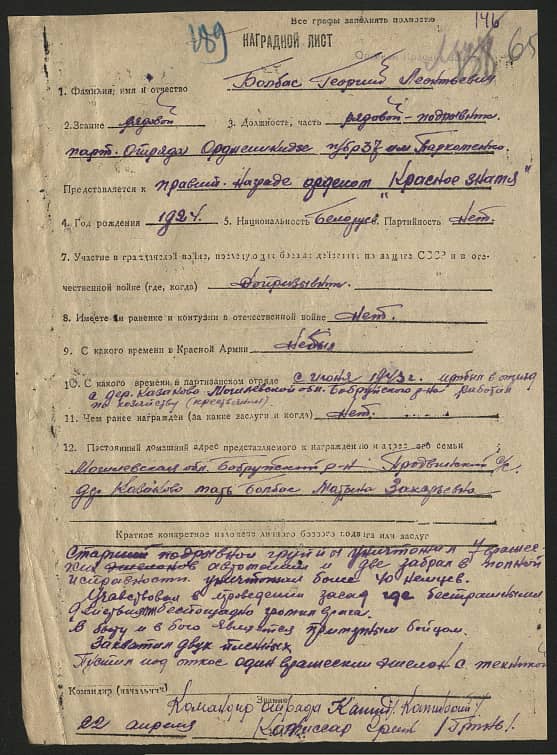 Все графы заполнять полностью
146
189
65
НАГРАДНОЙ ЛИСТ
1. Фамилия, имя и отчество Болбас Георгий Леонтьевич
2. Звание рядовой 3. Должность, часть рядовой - подрывник
парт. Отряда Орджоникидзе п/бр 37 им Пархоменко.
Представляется к правит. Награде орденом "Красное знамя"
4. Год рождения 1924. 5. Национальность Белорус 6. Партийность Нет.
7. Участие в гражданской войне, последующих боевых действиях по защите СССР и в оте-
чественной войне (где, когда) допризывник
8. Имеет ли ранение и контузии в отечественной войне Нет.
9. С какого времени в Красной Армии Небыл
10. С какого времени в партизанском отряде с июня 1943 г. прибыл в отряд
с дер. Казаково Могилевской обл. Бобруйского р-на работал
по хозяйству (крестьянин)
11. Чем ранее награжден (за какие заслуги и когда) Нет.
12. Постоянный домашний адрес представляемого к награждению и адрес его семьи
Могилевская обл. Бобруйский р-н с/с
дер Казаково мать Болбас Матрына Захарьевна
Краткое конкретное изложение личного боевого подвига или заслуг
Старший подрывной групы уничтожил 7 враже-
ских автомашин и две забрал в полной
исправности. уничтожил более 40 немцев.
Учавствовал в проведении засад где бесстрашными
действиями беспощадно громил врага.
В быту и в бою является примерным бойцом.
Захватил двух пленных
Пустил под откос один вражеский эшелон с техникой
Командир (начальник)
Звание
Командир отряда
22 апреля Комиссар